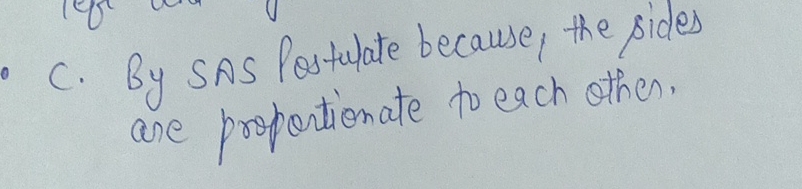 left
• C. By SAS Postulate because, the sides
are proportionate to each other.